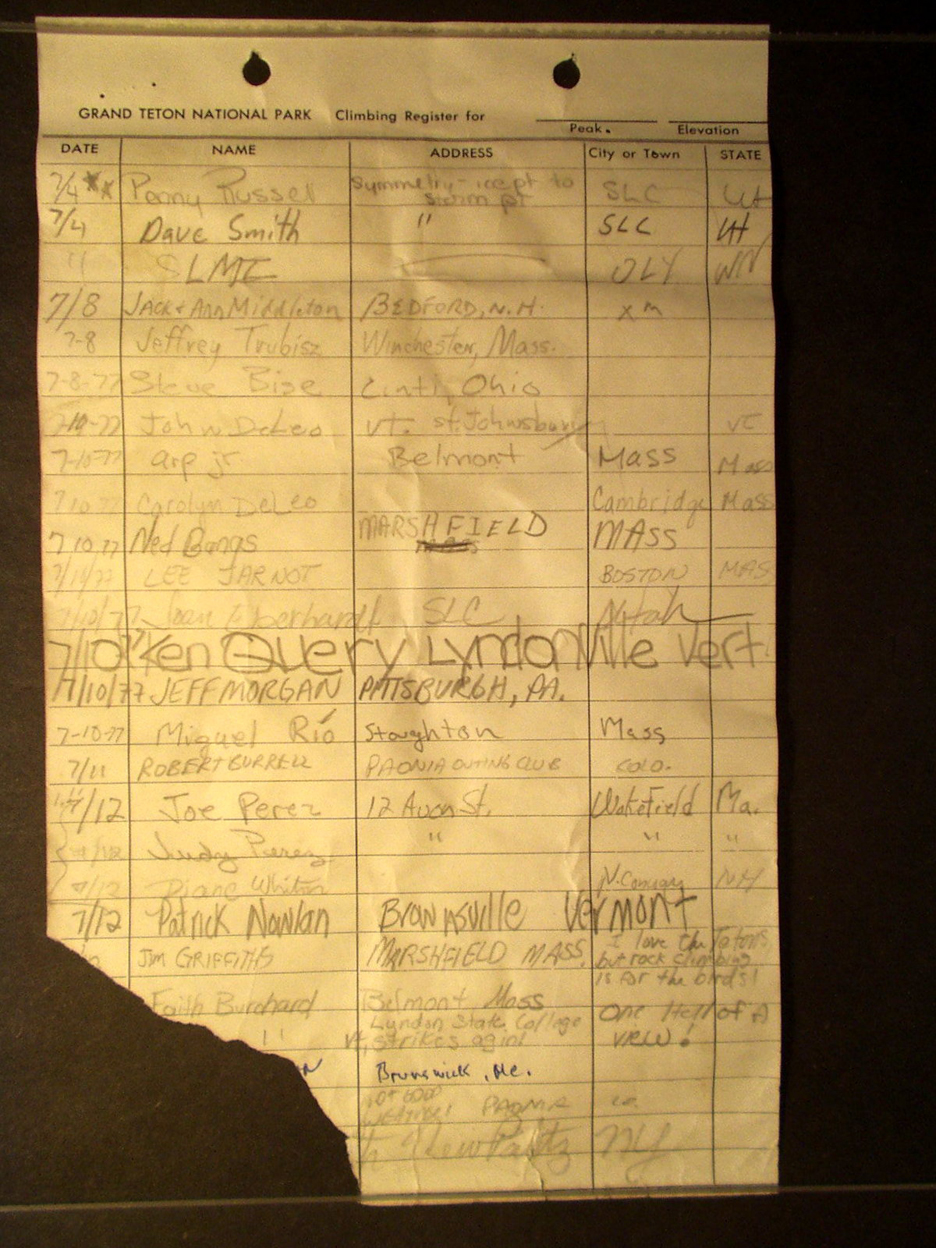 GRAND TETON NATIONAL PARK Climbing Register for
Peak. Elevation
DATE NAME ADDRESS City or Town STATE
7/4 Penny Russel Symmetry - icept to storm pt SLC Ut
7/4 Dave Smith " SLC Ut
" SLME OLY WN
7/8 JACK + Ann Middleton BEDFORD, N.H.
7-8 Jeffrey Trubisz Winchester, Mass.
7-8-77 Steve Bise Cinti, Ohio
7-10-77 John DeLeo Vt. St. Johnsbury VT
7-10-77 arp jr Belmont Mass Mass
7 10 77 Carolyn DeLeo Cambridge Mass
7 10 77 Ned Bangs MARSHFIELD MAss
7/10/77 LEE JARNOT BOSTON MAS
7/10/77 Joan Eberhardt SLC Utah
7/10 Ken Query Lyndonville Vert.
7/10/77 JEFF MORGAN PITTSBURGH, PA.
7-10-77 Miguel Río Stoughton Mass
7/11 ROBERT BURRELL PAONIA OUTING CLUB COLO.
7/12 Joe Perez 12 Avon St. Wakefield Ma.
7/12 Judy Perez " " "
7/12 Diane Whiton N. Conway NH
7/12 Patrick Nowlan Brownsville Vermont
JIM GRIFFITHS MARSHFIELD MASS. I love the Tetons,
but rock climbing
is for the birds!
Faith Burchard Belmont Mass One Hell of A
" Lyndon State College view!
Vt, strikes agin!
Brunswick, Me.
PAONIA
New Paltz NY